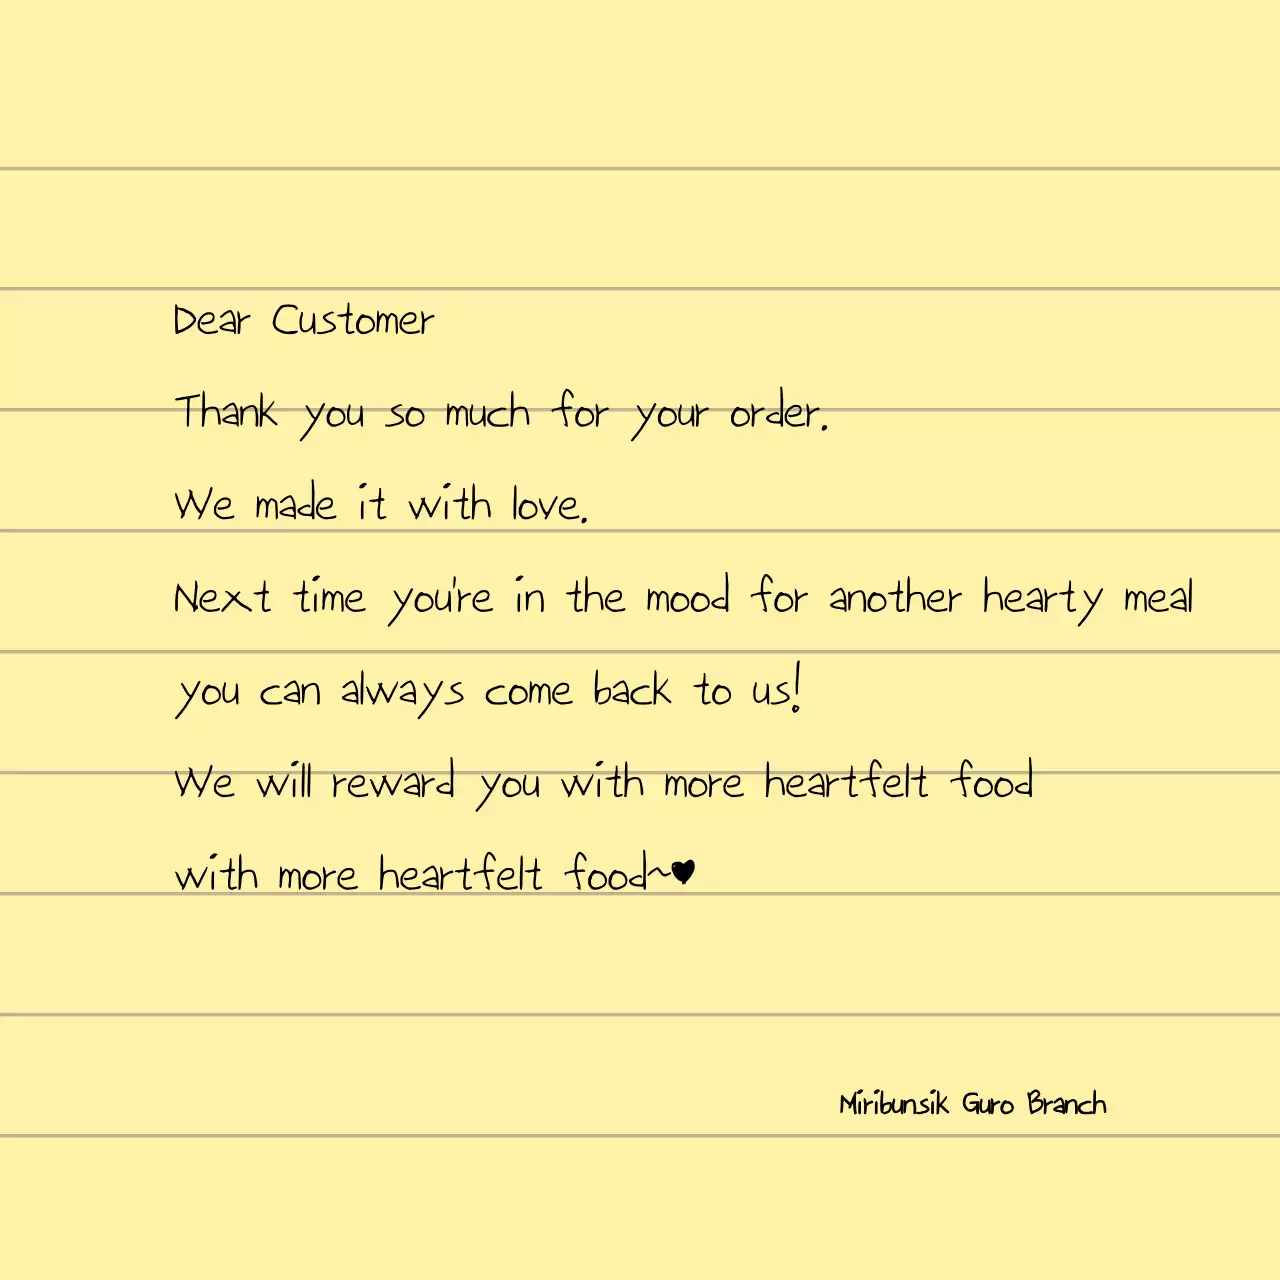 Dear Customer
Thank you so much for your order.
We made it with love.
Next time you're in the mood for another hearty meal
you can always come back to us!
We will reward you with more heartfelt food
with more heartfelt food~♥
Miribunsik Guro Branch